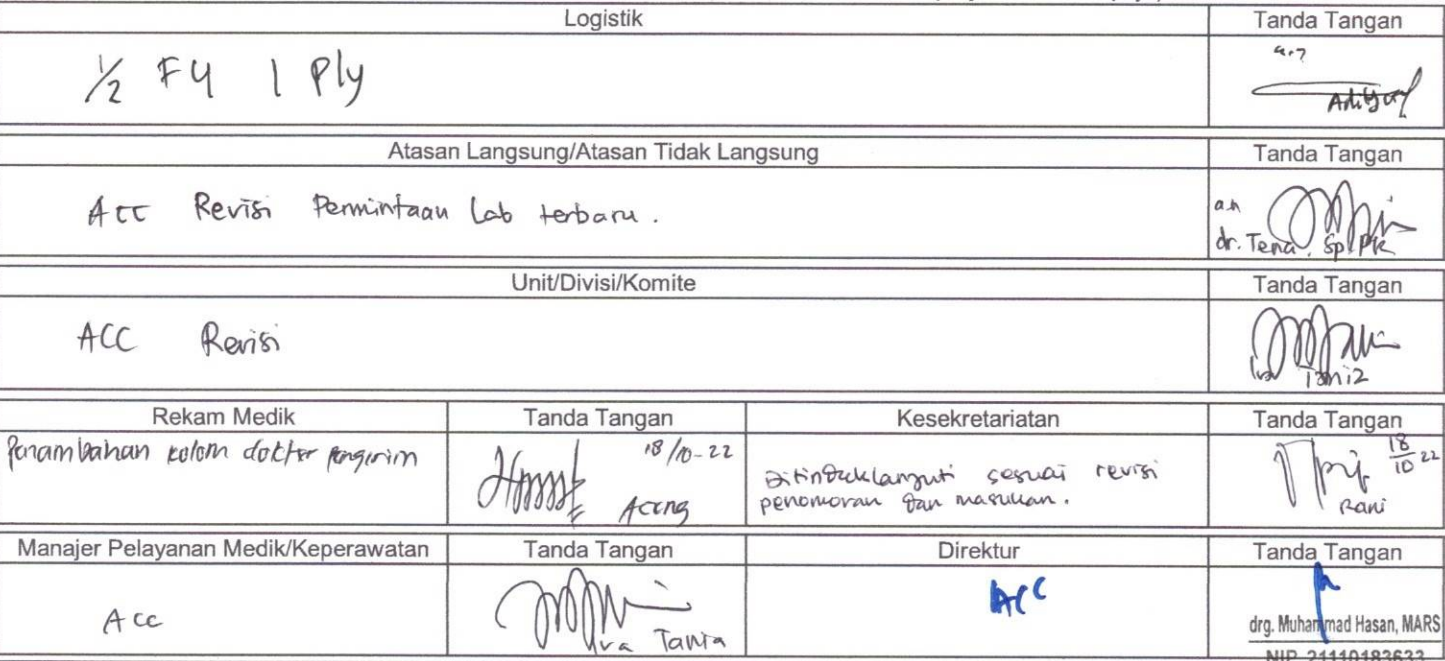 Logistik
Tanda Tangan
½ F4 1 Ply
Atasan Langsung/Atasan Tidak Langsung
Tanda Tangan
Acc Revisi Permintaan Lab terbaru.
a.n
dr. Tena, Sp PK
Unit/Divisi/Komite
Tanda Tangan
ACC Revisi
Rekam Medik
Tanda Tangan
Kesekretariatan
Tanda Tangan
Penambahan kolom dokter pengirim
18/10-22
Aceng
Ditindaklanjuti sesuai revisi
penomoran dan masukan.
18/10 22
Rani
Manajer Pelayanan Medik/Keperawatan
Tanda Tangan
Direktur
Tanda Tangan
Acc
Iva Tania
ACC
drg. Muhammad Hasan, MARS
NIP. 21110183633